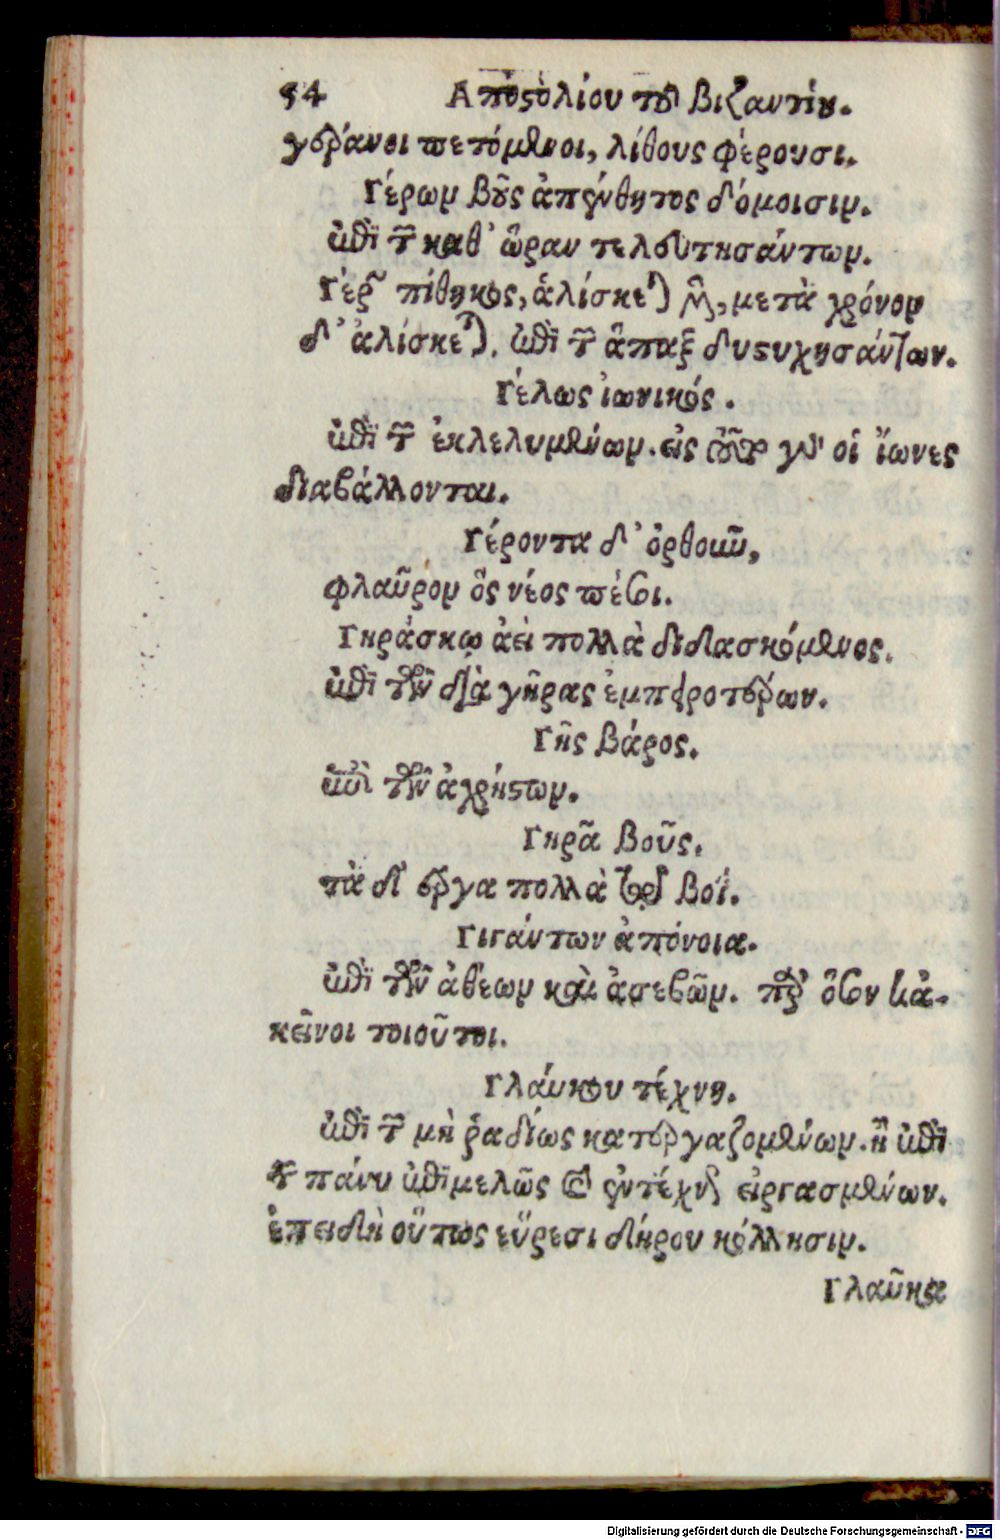 54 Αποστολίου τοῦ βιζαντίου.
γέρανοι πετόμενοι, λίθους φέρουσι.
Γέρων βοῦς ἀπένθητος δόμοισιν.
ἐπὶ τῶν καθ' ὥραν τελευτησάντων.
Γέρων πίθηκος, ἁλίσκεται μὲν, μετὰ χρόνον
δ' ἁλίσκεται. ἐπὶ τῶν ἅπαξ δυστυχησάντων.
Γέλως ἰωνικός.
ἐπὶ τῶν ἐκλελυμένων. εἰς τοῦτο γὰρ οἱ ἴωνες
διαβάλλονται.
Γέροντα δ' ὀρθοῦν,
φλαῦρον ὃς νέος πέσοι.
Γηράσκω ἀεὶ πολλὰ διδασκόμενος.
ἐπὶ τῶν διὰ γῆρας ἐμπειροτέρων.
Γῆς βάρος.
ἐπὶ τῶν ἀχρήστων.
Γηρᾶ βοῦς.
τὰ δ' ἔργα πολλὰ τῷ βοΐ.
Γιγάντων ἀπόνοια.
ἐπὶ τῶν ἀθέων καὶ ἀσεβῶν. παρ' ὅσον κἀ-
κεῖνοι τοιοῦτοι.
Γλάυκου τέχνη.
ἐπὶ τῶν μὴ ῥαδίως κατεργαζομένων. ἢ ἐπὶ
τῶν πάνυ ἐπιμελῶς καὶ ἐντέχνως εἰργασμένων.
ἐπειδὴ οὕτως εὕρεσι δήρου κόλλησιν.
Γλαῦκα
Digitalisierung gefördert durch die Deutsche Forschungsgemeinschaft - DFG